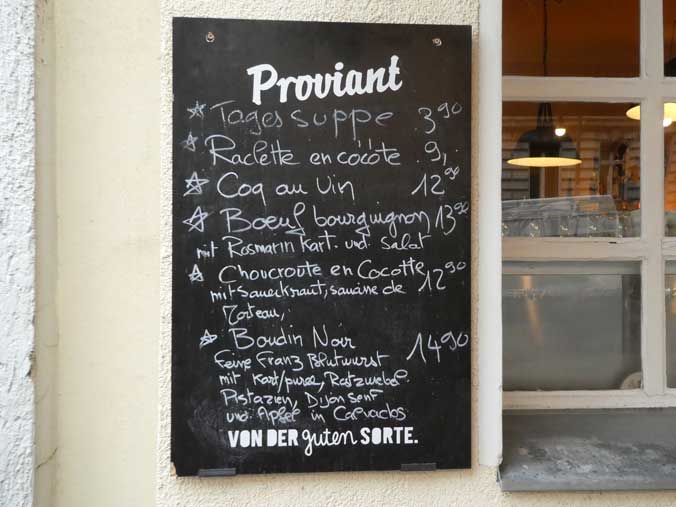 Proviant
Tages suppe 3 90
Raclette en cocôte 9,
Coq au Vin 12 90
Bœuf bourguignon 13 90
mit Rosmarin Kart. und Salat
Choucroute en Cocotte 12 90
mit Sauerkraut, saucine de
Morteau,
Boudin Noir 14 90
Feine Franz Blutwurst
mit Kart/puree, Rotzwiebel.
Pistazien, Dijon senf
und Apfel in Calvados
VON DER guten SORTE.